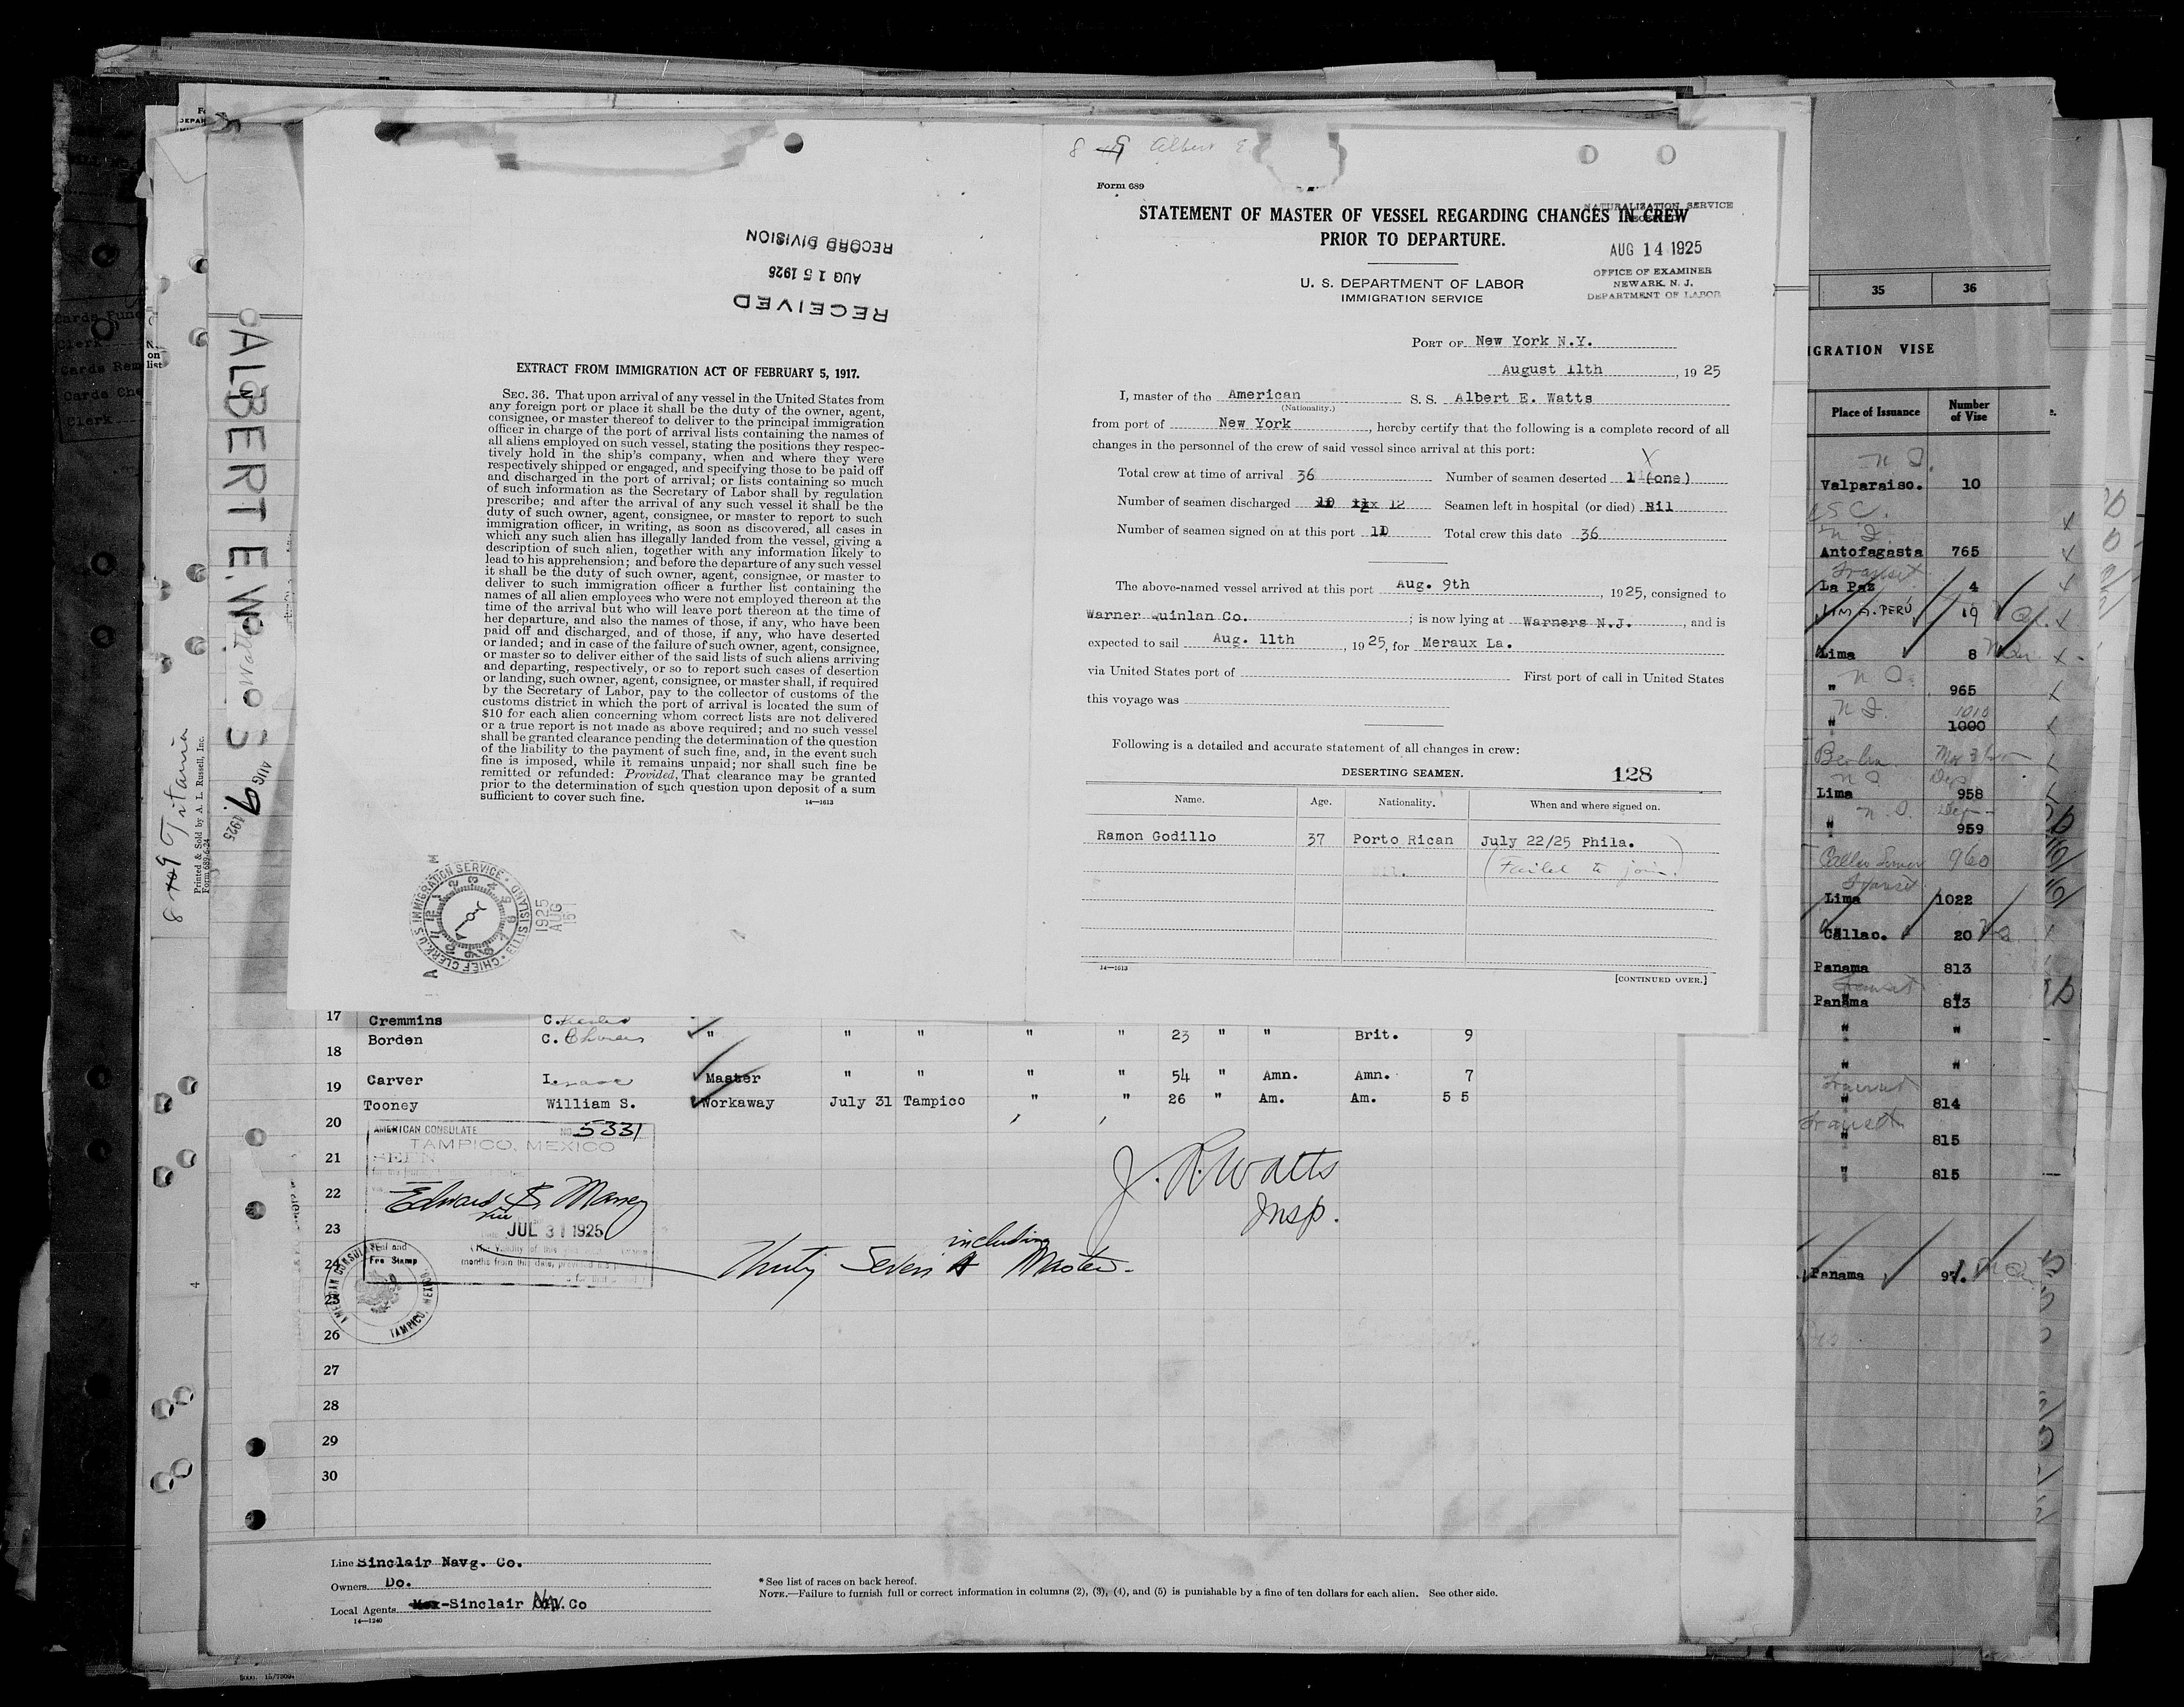 8 9 Albert E.
Form 689
STATEMENT OF MASTER OF VESSEL REGARDING CHANGES IN CREW
PRIOR TO DEPARTURE.
NATURALIZATION SERVICE
AUG 14 1925
OFFICE OF EXAMINER
NEWARK, N. J.
DEPARTMENT OF LABOR
U. S. DEPARTMENT OF LABOR
IMMIGRATION SERVICE
PORT OF New York N.Y.
August 11th, 1925
I, master of the American S. S. Albert E. Watts
(Nationality.)
from port of New York, hereby certify that the following is a complete record of all
changes in the personnel of the crew of said vessel since arrival at this port:
Total crew at time of arrival 36 Number of seamen deserted 1 (one)
Number of seamen discharged 12 Seamen left in hospital (or died) Nil
Number of seamen signed on at this port Total crew this date 36
The above-named vessel arrived at this port Aug. 9th, 1925, consigned to
Warner Quinlan Co.; is now lying at Warners N.J., and is
expected to sail Aug. 11th, 1925, for Meraux La.
via United States port of First port of call in United States
this voyage was
Following is a detailed and accurate statement of all changes in crew:
DESERTING SEAMEN. 128
Name. Age. Nationality. When and where signed on.
Ramon Godillo 37 Porto Rican July 22/25 Phila.
Nil. (Failed to join.)
14—1613
[CONTINUED OVER.]
RECEIVED
AUG 15 1925
RECORD DIVISION
EXTRACT FROM IMMIGRATION ACT OF FEBRUARY 5, 1917.
SEC. 36. That upon arrival of any vessel in the United States from
any foreign port or place it shall be the duty of the owner, agent,
consignee, or master thereof to deliver to the principal immigration
officer in charge of the port of arrival lists containing the names of
all aliens employed on such vessel, stating the positions they respec-
tively hold in the ship's company, when and where they were
respectively shipped or engaged, and specifying those to be paid off
and discharged in the port of arrival; or lists containing so much
of such information as the Secretary of Labor shall by regulation
prescribe; and after the arrival of any such vessel it shall be the
duty of such owner, agent, consignee, or master to report to such
immigration officer, in writing, as soon as discovered, all cases in
which any such alien has illegally landed from the vessel, giving a
description of such alien, together with any information likely to
lead to his apprehension; and before the departure of any such vessel
it shall be the duty of such owner, agent, consignee, or master to
deliver to such immigration officer a further list containing the
names of all alien employees who were not employed thereon at the
time of the arrival but who will leave port thereon at the time of
her departure, and also the names of those, if any, who have been
paid off and discharged, and of those, if any, who have deserted
or landed; and in case of the failure of such owner, agent, consignee,
or master so to deliver either of the said lists of such aliens arriving
and departing, respectively, or so to report such cases of desertion
or landing, such owner, agent, consignee, or master shall, if required
by the Secretary of Labor, pay to the collector of customs of the
customs district in which the port of arrival is located the sum of
$10 for each alien concerning whom correct lists are not delivered
or a true report is not made as above required; and no such vessel
shall be granted clearance pending the determination of the question
of the liability to the payment of such fine, and, in the event such
fine is imposed, while it remains unpaid; nor shall such fine be
remitted or refunded: Provided, That clearance may be granted
prior to the determination of such question upon deposit of a sum
sufficient to cover such fine.
14—1613
CHIEF CLERK, U.S. IMMIGRATION SERVICE · ELLIS ISLAND
1925
AUG
15
ALBERT E. W
Watts
AUG 9 1925
8 9 Tritania
Printed & Sold by A. L. Russell, Inc.
Form 689-6-24
17 Cremmins C.
18 Borden C. " " " " " 23 " " Brit. 9
19 Carver I. Master " " " " 54 " Amn. Amn. 7
20 Tooney William S. Workaway July 31 Tampico " " 26 " Am. Am. 5 5
21
22
23
24
25
26
27
28
29
30
AMERICAN CONSULATE No 5331
TAMPICO, MEXICO
SEEN
JUL 31 1925
months from this date, provided
Fee Stamp
AMERICAN CONSULATE TAMPICO, MEXICO
J. R. Watts
Insp.
Thirty Seven including Master.
Line Sinclair Navg. Co.
Owners Do.
Local Agents -Sinclair Nav. Co
14—1240
* See list of races on back hereof.
NOTE.—Failure to furnish full or correct information in columns (2), (3), (4), and (5) is punishable by a fine of ten dollars for each alien. See other side.
35 36
IGRATION VISE
Place of Issuance Number of Vise
Valparaiso. 10
Antofagasta 765
Transit
La Paz 4
LIMA. PERÚ 19
Lima 8
" 965
1010
" 1000
Berlin
Lima 958
" 959
960
Transit
Lima 1022
Callao. 20
Panama 813
Transit
Panama 813
" "
" "
Transit
" 814
Transit
" 815
" 815
Panama
Cards
Clerk
Cards Rem
Cards Che
Clerk